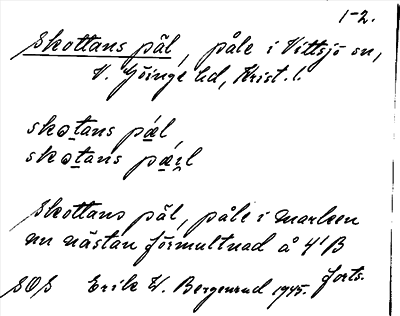 1-2.
Skottans pål, påle i Vittsjö sn,
V. Göinge hd, Krist. l.
skotans pǻl
skotans
Skottans pål, påle i marken
nu nästan förmultnad å 4¹B
forts.
SOS Erik W. Bergenrud 1945.